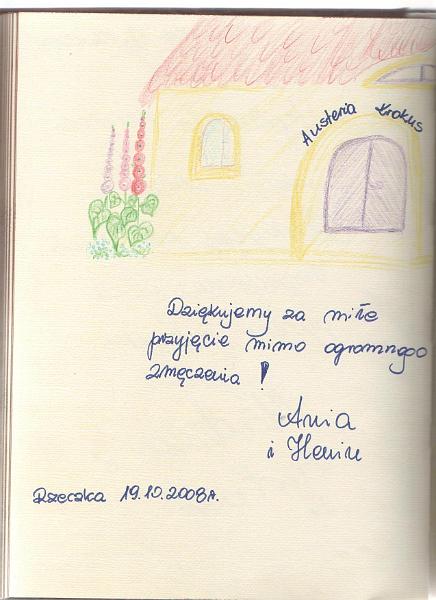 Austeria Krokus
Dziękujemy za miłe
przyjęcie mimo ogromngoo
zmęczenia !
Ania
i Henin
Rzeczka 19.10.2008r.